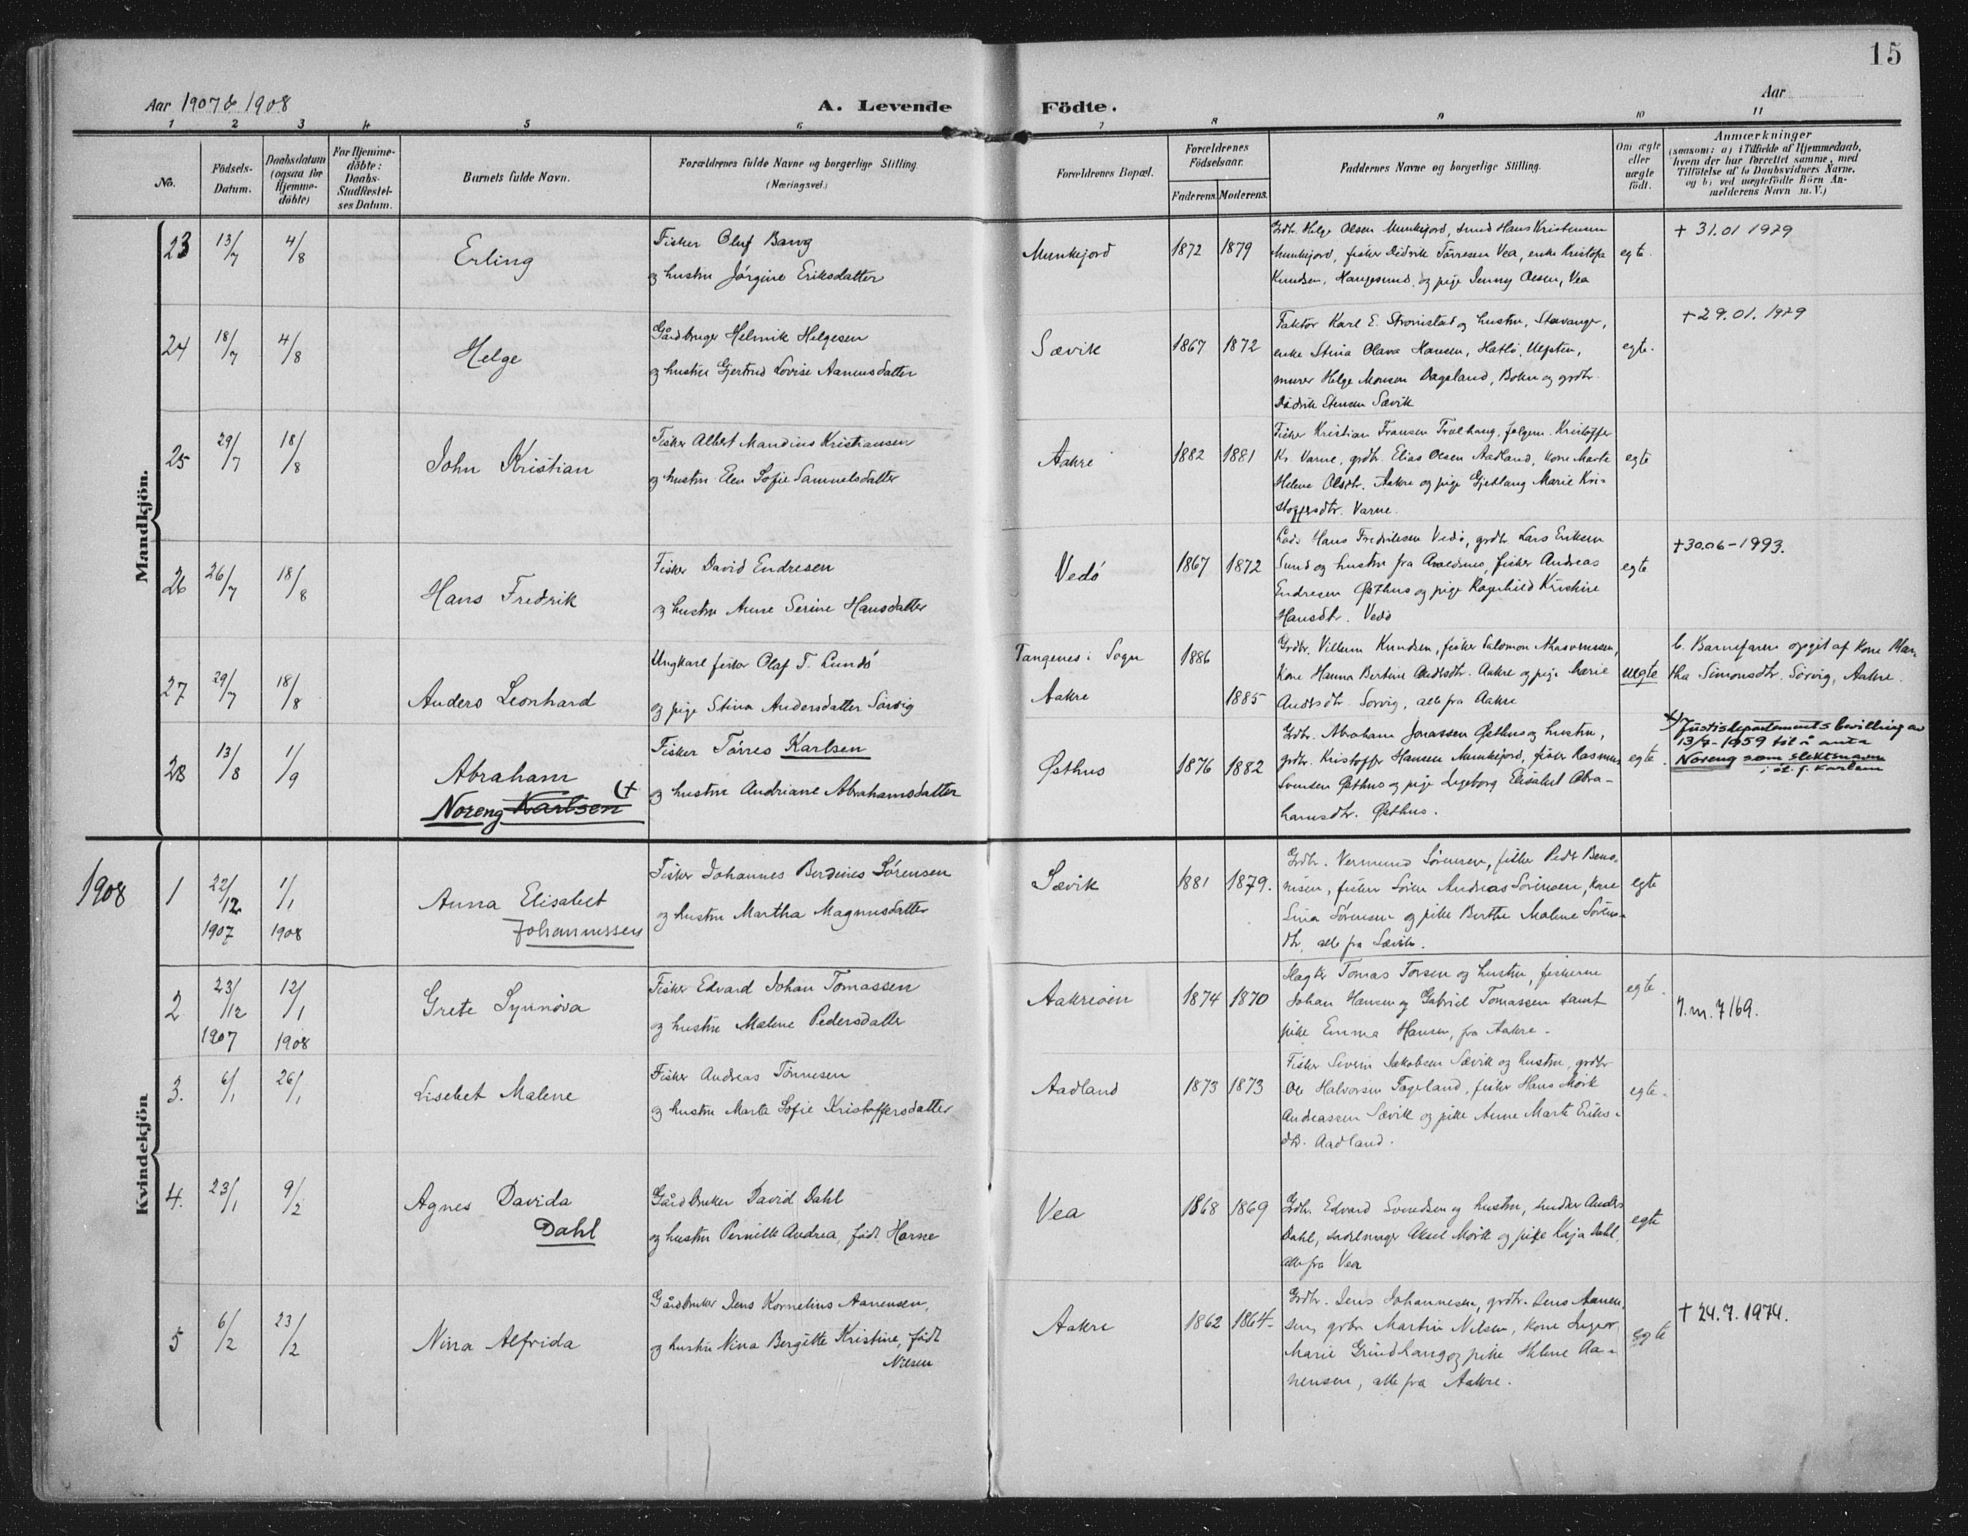 15
Aar 1907 & 1908
A. Levende Födte.
Aar
1 2 3 4 5 6 7 8 9 10 11
No.
Födsels-
Datum.
Daabsdatum
(ogsaa for
Hjemme-
döbte)
For Hjemme-
döbte:
Daabs-
Stadfæstel-
ses Datum.
Barnets fulde Navn.
Forældrenes fulde Navne og borgerlige Stilling.
(Næringsvei.)
Forældrenes Bopæl.
Forældrenes
Födselsaar.
Faderens. Moderens.
Faddernes Navne og borgerlige Stilling.
Om ægte
eller
uægte
födt.
Anmærkninger
(saasom: a) i Tilfælde af Hjemmedaab,
hvem der har forrettet samme, med
Tilföielse af to Daabsvidners Navne,
og b) ved uægtefödte Börn An-
melderens Navn m. V.)
Mandkjön.
23 13/7 4/8
Erling
Fisker Oluf Bang
og hustru Jörgine Eriksdatter
Munkejord
1872 1879
Grdbr. Helge Olsen Munkejord, smed Hans Kristensen
Munkejord, fisker Didrik Törresen Vea, enke Kristofa
Knudsen, Haugesund, og pige Jenny Olsen, Vea
egte.
+ 31.01 1979
24 18/7 4/8
Helge
Gårdbruger Helmik Helgesen
og hustru Gjertrud Lovise Aanensdatter
Sævik
1867 1872
Faktor Karl E. Strømstad og hustru, Stavanger,
enke Stina Olava Hansen, Hatlö,
murer Helge Monsen Dagsland, Bokn og grdbr.
Didrik Stensen Sævik
egte.
+ 29.01.1979
25 29/7 18/8
John Kristian
Fisker Albert Mandius Kristiansen
og hustru Elen Sofie Samuelsdatter
Aakre
1882 1881
Fisker Kristian Fransen Trælhaug, Kristoffer
Kr. Varne, grdbr. Elias Olsen Aadland, kone Marte
Helene Olsdtr. Aakre og pige Gjetlaug Marie Kri-
stoffersdtr. Varne.
egte
26 26/7 18/8
Hans Fredrik
Fisker David Endresen
og hustru Anne Serine Hansdatter
Vedö
1867 1872
Lods Hans Fredriksen Vedö, grdbr Lars Eriksen
Sund og hustru fra Avaldsnes, fisker Andreas
Endresen Østhus og pige Ragnhild Kristine
Hansdtr. Vedö
egte
+30.06-1993.
27 29/7 18/8
Anders Leonhard
Ungkarl fisker Olaf T. Lundö
og pige Stina Andersdatter Sörvig
Tangenes i Sogn
Aakre
1886
1885
Grdbr. Villum Knudsen, fisker Salomon Aasvenssen,
Kone Hanna Bertine Andrsdtr. Aakre og pige Marie
Andrsdtr. Sörvig, alle fra Aakre
uegte
b. Barnefaren opgit af kone Mar-
tha Simonsdtr. Sörvig, Aakre.
28 13/8 1/9
Abraham
Noreng Karlsen (+
Fisker Törres Karlsen
og hustru Andriane Abrahamsdatter
Østhus
1876 1882
Grdbr. Abraham Jonassen Østhus og hustru,
grdbr. Kristoffer Hansen Munkejord, fisker Rasmus
Svensen Østhus og pige Ingeborg Elisabet Abra-
hamsdtr. Østhus.
egte.
+) Justisdepartements bevilling av
13/7-1959 til å anta
Noreng som slektsnavn
i st. f. Karlsen
1908
Kvindekjön
1 22/12 1907 1/1 1908
Anna Elisabet
Johannessen
Fisker Johannes Berdines Sörensen
og hustru Martha Magnusdatter
Sævik
1881 1879.
Grdbr. Vermund Sörensen, fisker Peder Beno-
nisen, fisker Sören Andreas Sörensen, kone
Lina Sörensen og pike Berthe Malene Sörens-
dtr, alle fra Sævik.
egte
2 23/12 1907 12/1 1908
Grete Synnöva
Fisker Edvard Johan Tomassen
og hustru Malene Pedersdatter
Aakreöen
1874 1870
Slagter Tomas Torsen og hustru, fiskerne
Johan Hansen og Gabriel Tomassen samt
pike Emma Hansen, fra Aakre.
egte.
7.m.7169.
3. 6/1 26/1
Lisebet Malene
Fisker Andreas Tönnesen
og hustru Marta Sofie Kristoffersdatter
Aadland
1873 1873
Fisker Severin Jakobsen Sævik og hustru, grdbr
Ole Halvorsen Fageland, fisker Hans Mörk
Andreassen Sævik og pike Anne Marte Eriks-
dtr. Aadland.
egte.
4. 23/1 9/2
Agnes Davida
Dahl
Gårdbruker David Dahl
og hustru Pernille Andrea, födt Horne
Vea
1868 1869
Grdbr. Edvard Svendsen og hustru, snedker Anders
Dahl, Aksel Mörk og pige Kaja Dahl,
alle fra Vea
egte
5 6/2 23/2
Nina Alfrida
Gårdbruker Jens Kornelius Aanensen,
og hustru Nina Bergitte Kristine, födt
Nilsen
Aakre
1862 1864.
Grdbr. Jens Johannesen, grdbr. Jens Aanen-
sen, grbr Martin Nilsen, kone Inger
Marie Grindhaug og pike Helene Aa-
nensen, alle fra Aakre.
egte
+ 24.7.1974.